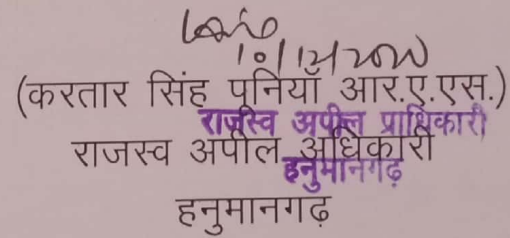 (करतार सिंह पूनियाँ आर.ए.एस.)
राजस्व अपील प्राधिकारी
राजस्व अपील अधिकारी
हनुमानगढ़
हनुमानगढ़